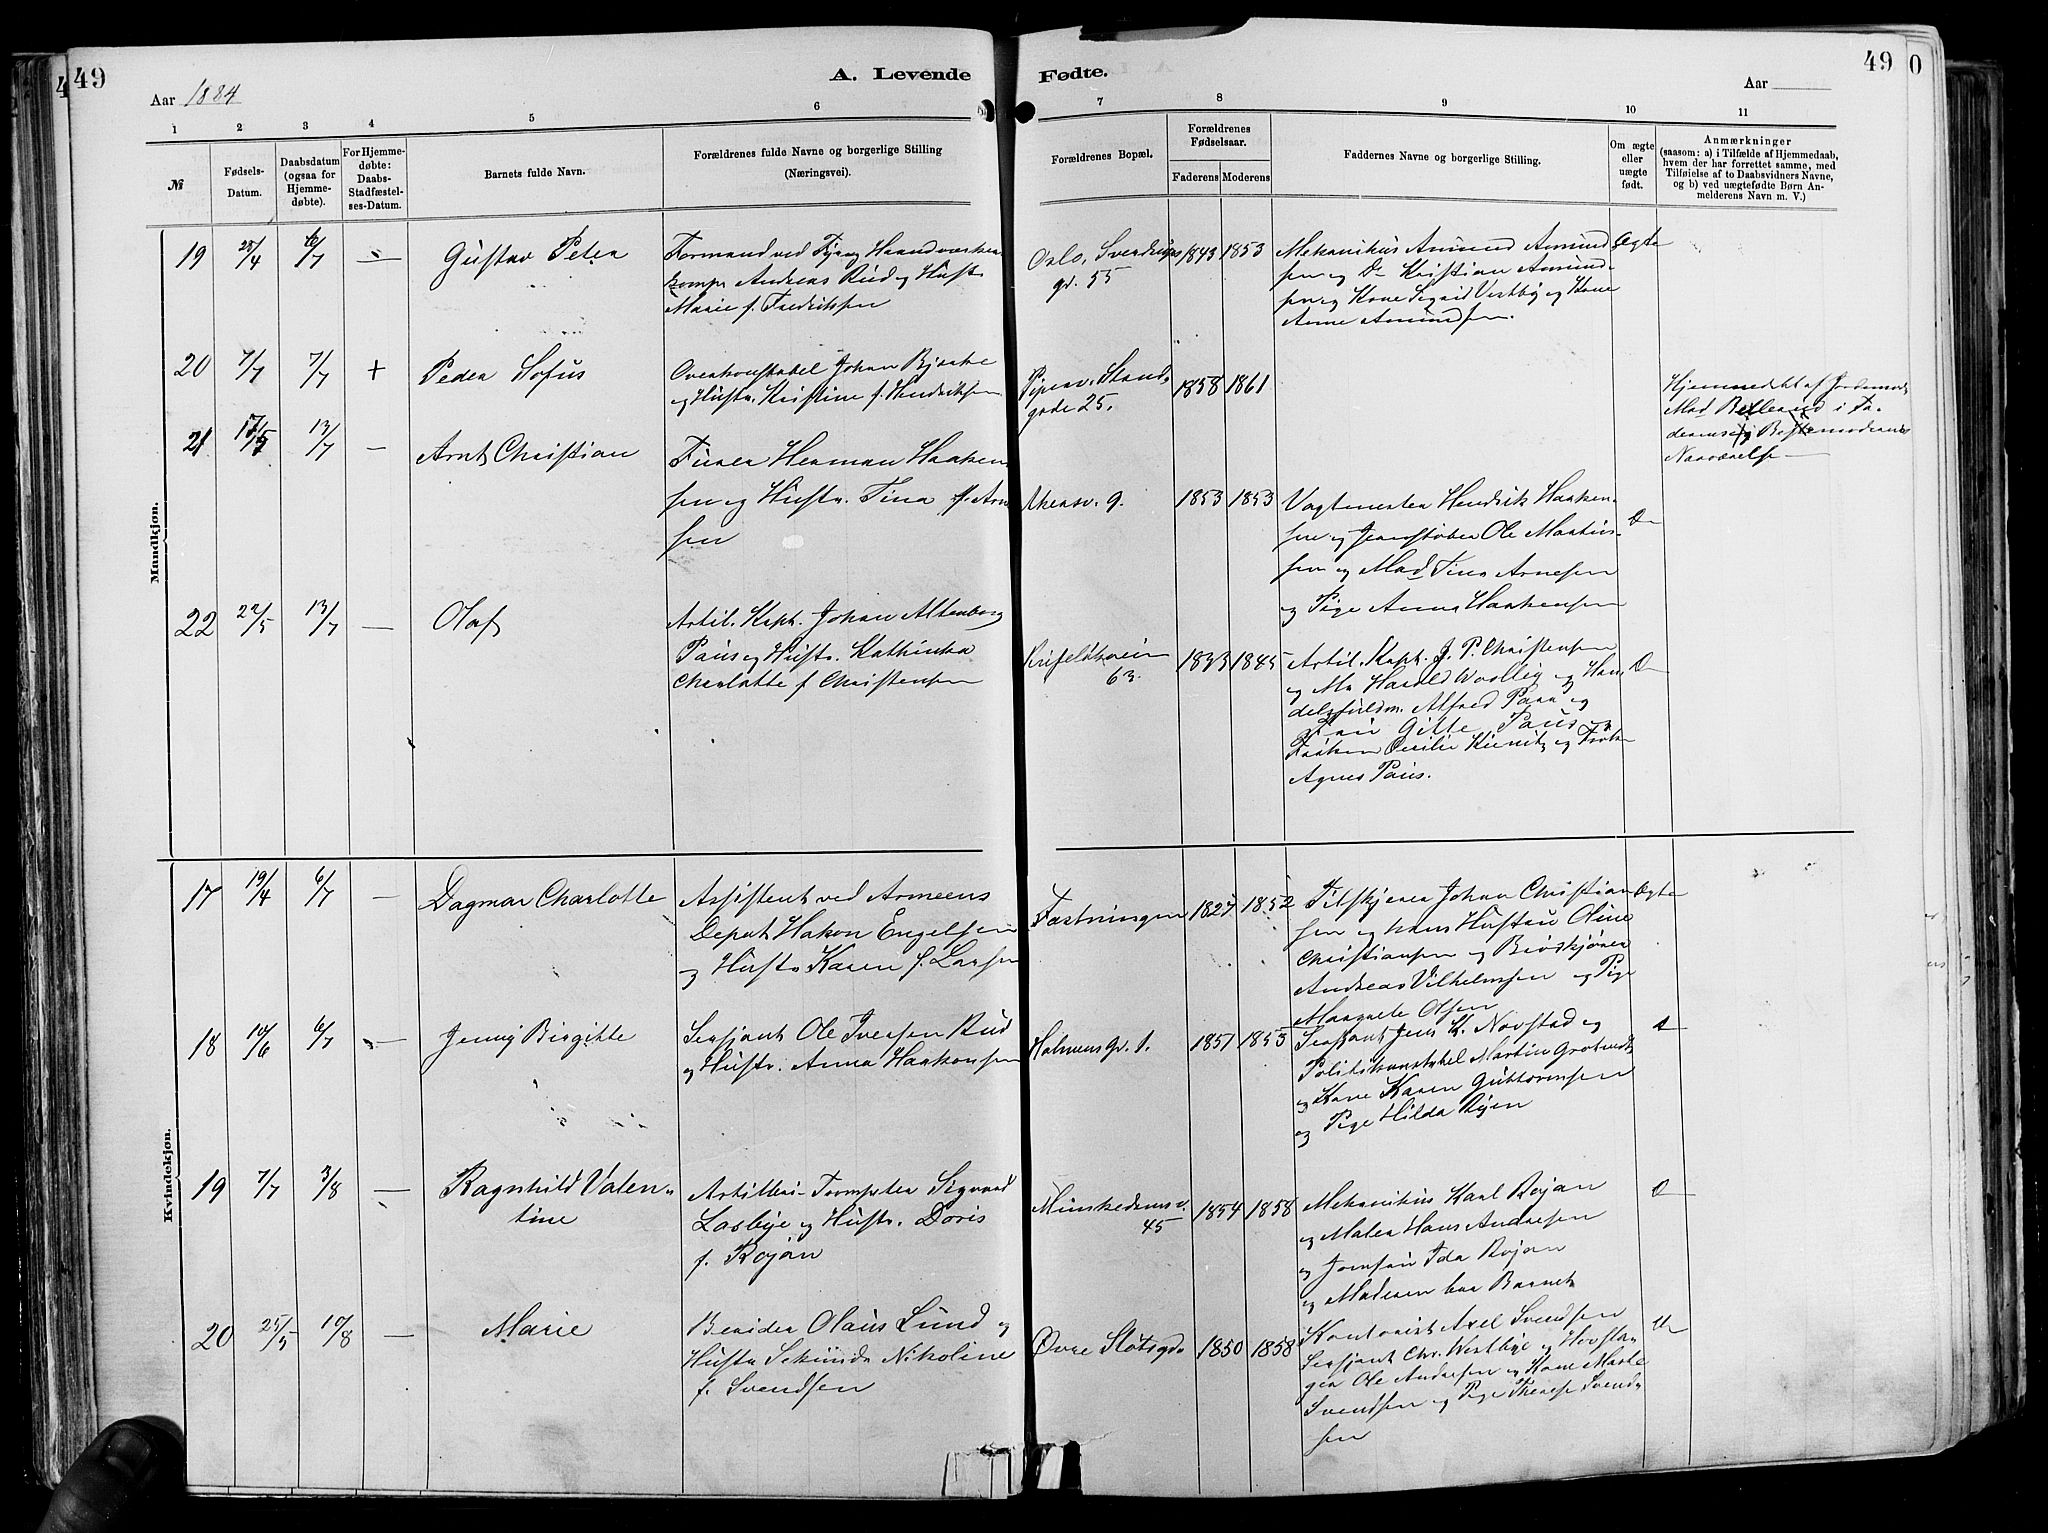 49
A. Levende
Fødte.
49
0
Aar 1884
Aar
1 2 3 4 5 6 7 8 9 10 11
№
Fødsels-
Datum.
Daabsdatum
(ogsaa for
Hjemme-
døbte).
For Hjemme-
døbte:
Daabs-
Stadfæstel-
ses-Datum.
Barnets fulde Navn.
Forældrenes fulde Navne og borgerlige Stilling
(Næringsvei).
Forældrenes Bopæl.
Forældrenes
Fødselsaar.
Faderens Moderens
Faddernes Navne og borgerlige Stilling.
Om ægte
eller
uægte
født.
Anmærkninger
(saasom: a) i Tilfælde af Hjemmedaab,
hvem der har forrettet samme, med
Tilføielse af to Daabsvidners Navne,
og b) ved uægtefødte Børn An-
melderens Navn m. V.)
Mandkjøn.
19 25/4 6/7 —
Gustav Peter
Formand ved Fyr og Haandværker
komp. Andreas Rud og Hustr.
Marie f. Fredriksen
Oslo, Sverdrups
gd. 55
1843 1853
Mekanikus Amund Amund
sen og Do Kristian Amund-
sen og Kone Sigrid Vestby og Kone
Anne Amundsen.
Ægte
20 7/7 7/7 +
Peder Sofus
Overkonstabel Johan Bjerke
og Hustr. Kristine f. Hendriksen
Piperv. Strand
gade 25.
1858 1861
Hjemmedøbt af Jordemod.
Mad i Fa-
derens og Bestemoderens
Nærværelse —
21 13/7 —
Arnt Christian
Furer Herman Haaken
sen og Hustr. Tina f. Arn
sen
Akersv. 9.
1853 1853
Vagtmester Hendrik Haaken-
sen og Jernstøber Ole Martin-
sen og Mad Tina Arnesen
og Pige Anna Haakensen
Do
22 22/5 13/7 —
Olaf
Artil. Kapt. Johan Altenborg
Paus og Hustr. Kathinka
Charlotte f Christensen
63.
1833 1845
Artil. Kapt. J. P. Christensen
og Mr Harald Woollig og Han
delsfuldm. Alfred Paus og
Fru Gitte Paus og
Frøken Cecilie og Frøken
Agnes Paus.
Do
Kvindekjøn.
17 19/4 6/7 —
Dagmar Charlotte
Assistent ved Armeens
Depot Hakon Engelsen
og Hustr Karen f. Larsen
Fæstningen
1827 1852
Filskjærer Johan Christian
sen og hans Hustru Oline
Christiansen og Brødkjører
Andreas Vilhelmsen og Pige
Margrete Olsen
Ægte
18 10/6 6/7 —
Jenny Birgitte
Sersjant Ole Iversen Rud
og Hustr. Anna Haakonsen
Holmensgd. 1.
1851 1853
Sersjant Jens K. Novstad og
Politikonstabel Martin Grotvedt
og Kone Karen Guttormsen
og Pige Hilda Røjen
Do
19 7/7 3/8 —
Ragnhild Valen-
tine
Artilleri-Trompeter Sigvard
Lasbye og Hustr. Doris
f. Rojan
Munkedamsv.
45
1854 1858
Mekanikus Karl Rojan
og Maler Hans Andresen
og Jomfru Ida Rojan
og Moderen bar Barnet
Do
20 25/5 10/8 —
Marie
Berider Olaus Lund og
Hustr Sekunda Nikoline
f. Svendsen
Øvre Slotsgd.
1850 1858
Kontorist Axel Svendsen
Sersjant Chr. Westbye og Hovsla-
ger Ole Andresen og Kone Marte
Svendsen og Pige Therese Svend-
sen
Do